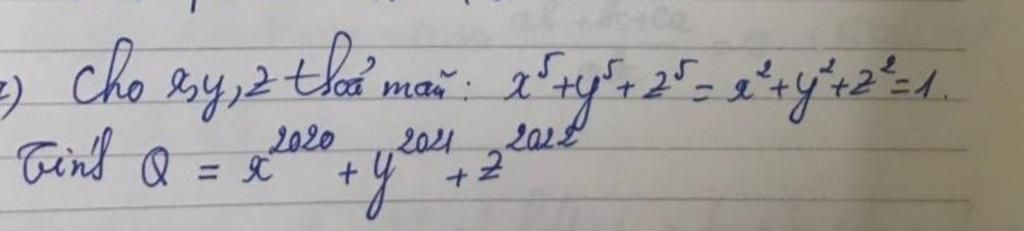 Cho x, y, z thoả mãn: x⁵ + y⁵ + z⁵ = x² + y² + z² = 1.
Tính Q = x²⁰²⁰ + y²⁰²¹ + z²⁰²²